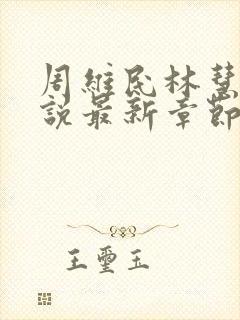 周維民林慧
說最新章節
王璽玉